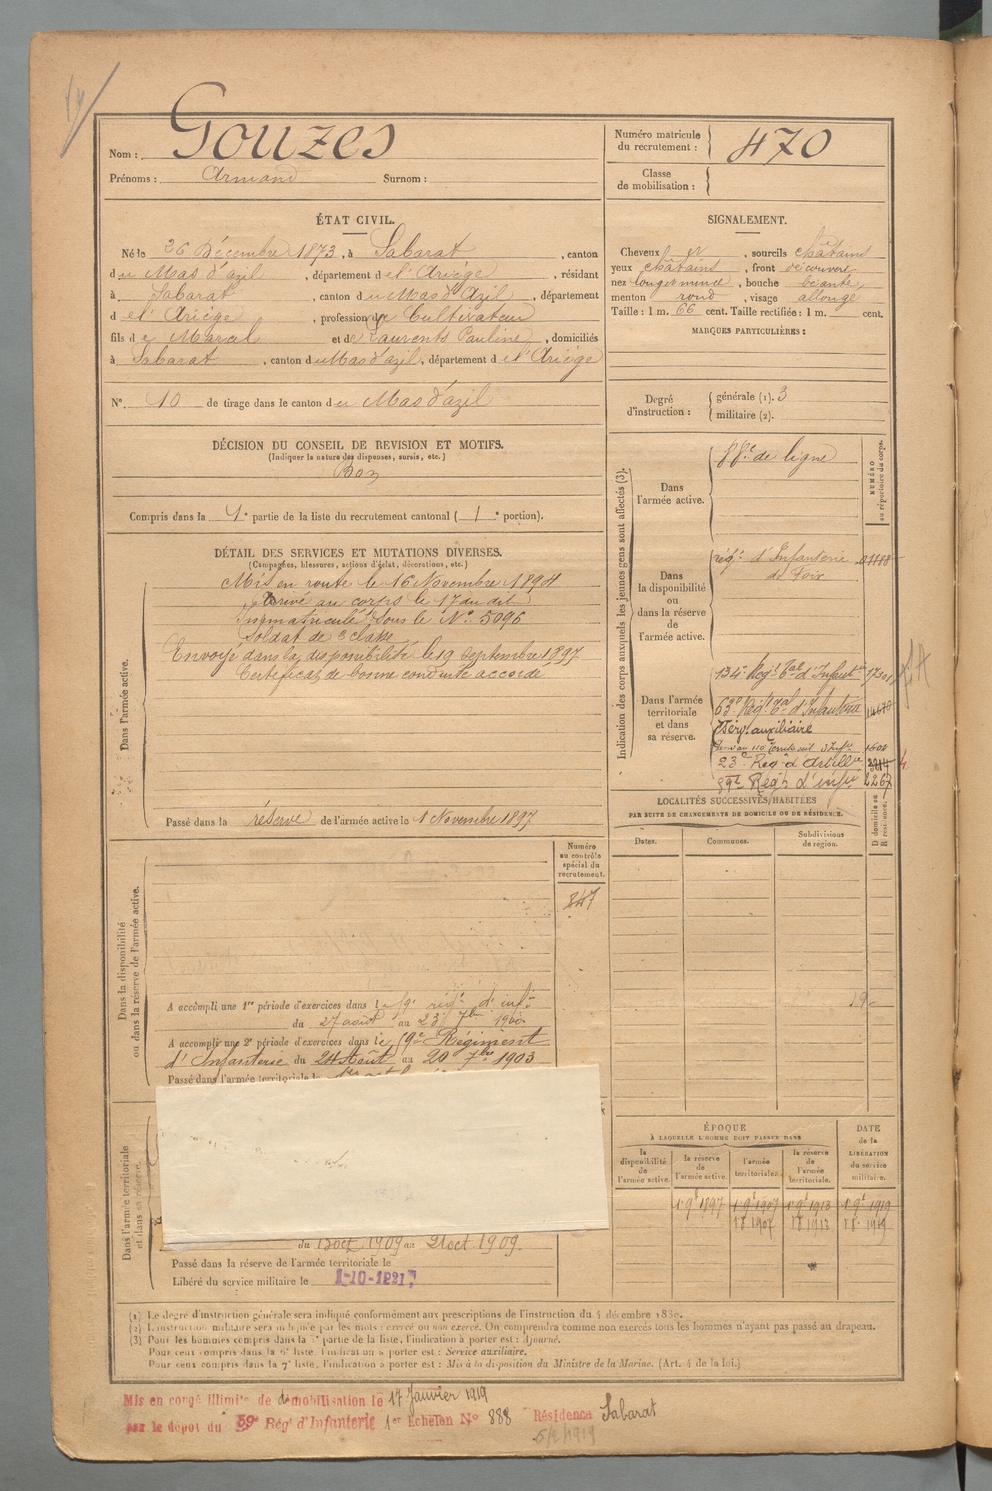 Gouzes
Nom :
Prénoms : Armand Surnom :
Numéro matricule du recrutement : 470
Classe de mobilisation :
ÉTAT CIVIL.
Né le 26 Décembre 1873, à Sabarat, canton
du Mas d'azil, département de l'Ariège, résidant
à Sabarat, canton du Mas d'Azil, département
de l'Ariège, profession de Cultivateur
fils de Marcel et de Laurents Pauline, domiciliés
à Sabarat, canton du Mas d'azil, département de l'Ariège
N° 10 de tirage dans le canton du Mas d'azil
SIGNALEMENT.
Cheveux, sourcils châtains
yeux châtains, front découvert
nez long et mince, bouche béante,
menton rond, visage allongé
Taille : 1 m. 66 cent. Taille rectifiée : 1 m. cent.
MARQUES PARTICULIÈRES :
Degré d'instruction : générale (1). 3
militaire (2).
DÉCISION DU CONSEIL DE REVISION ET MOTIFS.
(Indiquer la nature des dispenses, sursis, etc.)
Bon
Compris dans la 1e partie de la liste du recrutement cantonal (1e portion).
DÉTAIL DES SERVICES ET MUTATIONS DIVERSES.
(Campagnes, blessures, actions d'éclat, décorations, etc.)
Dans l'armée active.
Mis en route le 16 Novembre 1894
Arrivé au corps le 17 du dit
Immatriculé sous le N° 5096
Soldat de 2 classe
Envoyé dans la disponibilité le 19 Septembre 1897
Certificat de bonne conduite accordé
Passé dans la réserve de l'armée active le 1 Novembre 1897
Indication des corps auxquels les jeunes gens sont affectés (3).
NUMÉRO au répertoire du corps.
Dans l'armée active.
de ligne
Dans la disponibilité ou dans la réserve de l'armée active.
régt d'Infanterie
de Foix
Dans l'armée territoriale et dans sa réserve.
134e Régt Tal d'Infanterie
63e Régt Tal d'Infanterie
Serv. auxiliaire
1601
23e Rég d'Artillie
59e Régt d'infie 2267
LOCALITÉS SUCCESSIVES HABITÉES
PAR SUITE DE CHANGEMENTS DE DOMICILE OU DE RÉSIDENCE.
Dates. Communes. Subdivisions de région. D domicile ou R résidence.
Dans la disponibilité ou dans la réserve de l'armée active.
Numéro au contrôle spécial du recrutement.
847
A accompli une 1re période d'exercices dans le 59e régt d'infie
du 27 août au 23 7bre 1900
A accompli une 2e période d'exercices dans le 59e Régiment
d'Infanterie du 24 Août au 20 7bre 1903
Passé dans l'armée territoriale le
Dans l'armée territoriale et dans sa réserve.
du 13 oct 1909 au 21 oct 1909.
Passé dans la réserve de l'armée territoriale le
Libéré du service militaire le
ÉPOQUE
À LAQUELLE L'HOMME DOIT PASSER DANS
la disponibilité de l'armée active. la réserve de l'armée active. l'armée territoriale. la réserve de l'armée territoriale.
DATE de la LIBÉRATION du service militaire.
1 9e 1897 1 9e 1907 1 9e 1913 1 9e 1919
(1) Le degré d'instruction générale sera indiqué conformément aux prescriptions de l'instruction du 4 décembre 1889.
(2) L'instruction militaire sera indiquée par les mots : exercé ou non exercé. On comprendra comme non exercés tous les hommes n'ayant pas passé au drapeau.
(3) Pour les hommes compris dans la 5e partie de la liste, l'indication à porter est : Ajourné.
Pour ceux compris dans la 6e liste, l'indication à porter est : Service auxiliaire.
Pour ceux compris dans la 7e liste, l'indication à porter est : Mis à la disposition du Ministre de la Marine. (Art. 4 de la loi.)
Mis en congé illimité de démobilisation le 17 Janvier 1919
par le dépôt du 59e Régt d'Infanterie 1er Echelon N° 888 Résidence Sabarat
5/2/1919